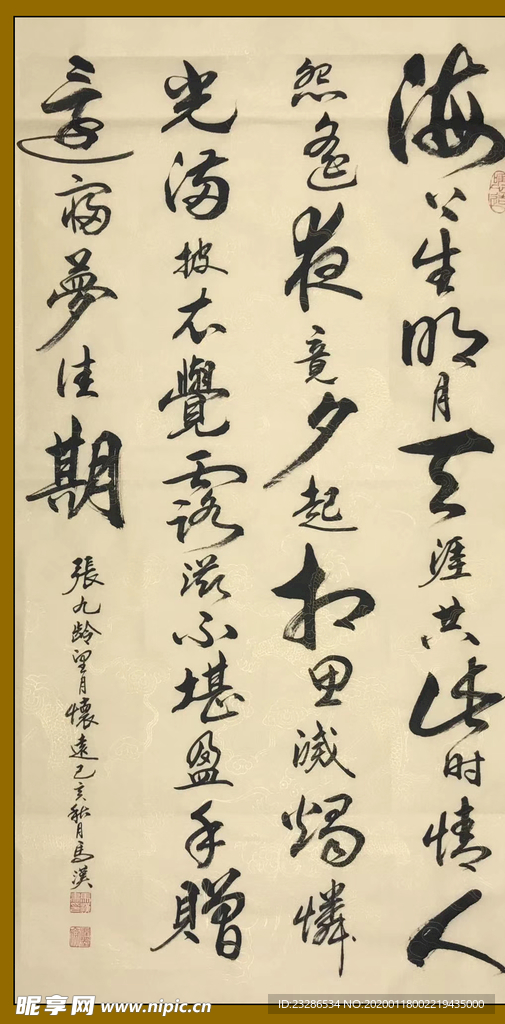 海上生明月天涯共此时情人
怨遙夜竟夕起相思滅燭憐
光满披衣覺露滋不堪盈手贈
還寢夢佳期
張九齡望月懷遠己亥秋月馬漢
昵享网 www.nipic.cn
ID:23286534 NO:20200118002219435000